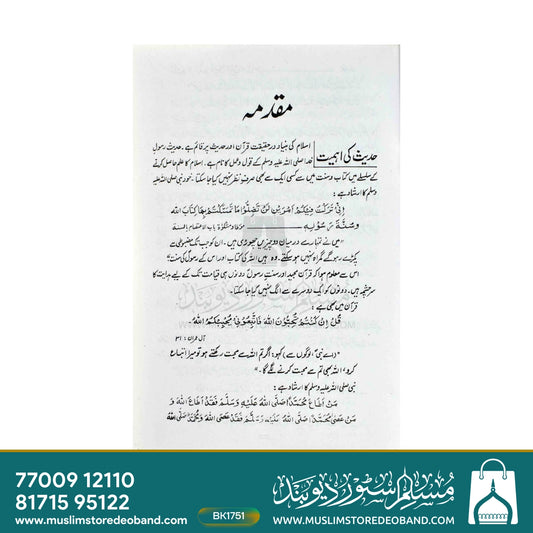 مقدمہ
حدیث کی اہمیت
اسلام کی بنیاد در حقیقت قرآن اور حدیث پر قائم ہے۔ حدیث رسولِ
خدا صلی اللہ علیہ وسلم کے قول و عمل کا نام ہے۔ اسلام کا علم حاصل کرنے
کے سلسلے میں کتاب و سنت میں سے کسی ایک سے بھی صرفِ نظر نہیں کیا جا سکتا۔ خود نبی صلی اللہ علیہ
وسلم کا ارشاد ہے:
اِنِّیْ تَرَکْتُ فِیْکُمْ اَمْرَیْنِ لَنْ تَضِلُّوْا مَا تَمَسَّکْتُمْ بِهِمَا کِتَابَ اللّٰهِ
وَسُنَّةَ رَسُوْلِهٖ
"میں نے تمہارے درمیان دو چیزیں چھوڑی ہیں۔ ان کو جب تک مضبوطی سے
پکڑے رہو گے گمراہ نہیں ہو سکتے۔ وہ ہیں اللہ کی کتاب اور اس کے رسول کی سنت"
اس سے معلوم ہوا کہ قرآن مجید اور سنتِ رسول دونوں ہی قیامت تک کے لیے ہدایت کا
سرچشمہ ہیں۔ دونوں کو ایک دوسرے سے الگ نہیں کیا جا سکتا۔
قرآن میں بھی ہے:
قُلْ اِنْ کُنْتُمْ تُحِبُّوْنَ اللّٰهَ فَاتَّبِعُوْنِیْ یُحْبِبْکُمُ اللّٰهُ۔
آل عمران: ۳۱
"(اے نبی، لوگوں سے) کہو: اگر تم اللہ سے محبت رکھتے ہو تو میرا اتباع
کرو، اللہ بھی تم سے محبت کرنے لگے گا۔"
نبی صلی اللہ علیہ وسلم کا ارشاد ہے:
مَنْ اَطَاعَ مُحَمَّدًا صَلَّی اللّٰهُ عَلَیْهِ وَسَلَّمَ فَقَدْ اَطَاعَ اللّٰهَ وَ
مَنْ عَصٰی مُحَمَّدًا صَلَّی اللّٰهُ عَلَیْهِ وَسَلَّمَ فَقَدْ عَصَی اللّٰهَ وَمُحَمَّدٌ صَلَّی اللّٰهُ
77009 12110
81715 95122
www.muslimstoredeoband.com
BK1751
مسلم اسٹور دیوبند
WWW.MUSLIMSTOREDEOBAND.COM